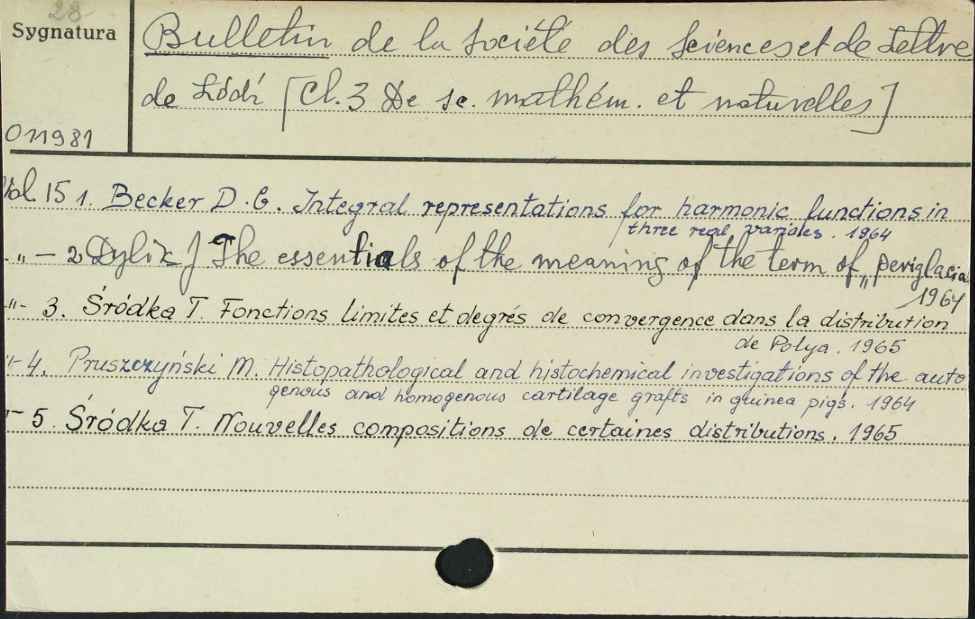 28
Sygnatura
Bulletin de la Société des Sciences et de Lettre
de Łódź [Cl. 3 De sc. mathém. et naturelles]
O11981
Vol 15 1. Becker D. G. Integral representations for harmonic functions in
three real variables. 1964
-"- 2 Dylik J The essentials of the meaning of the term of "periglacial
1964
-"- 3. Śródka T. Fonctions limites et degrés de convergence dans la distribution
de Polya. 1965
"- 4. Pruszczyński M. Histopathological and histochemical investigations of the auto
genous and homogenous cartilage grafts in guinea pigs. 1964
"- 5. Śródka T. Nouvelles compositions de certaines distributions. 1965